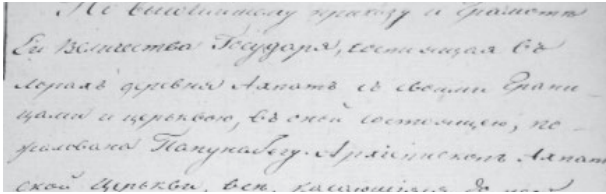 По высочайшему приказу и Грамотѣ
Ея Величества Государя, состоящая въ
Лорахъ деревня Ахпатъ съ своими Грани-
цами и церьквою, въ оной состоящею, по-
жалована Папунабегу. Архіепископъ Ахпат
ской Церькви, всѣ, касающіяся до